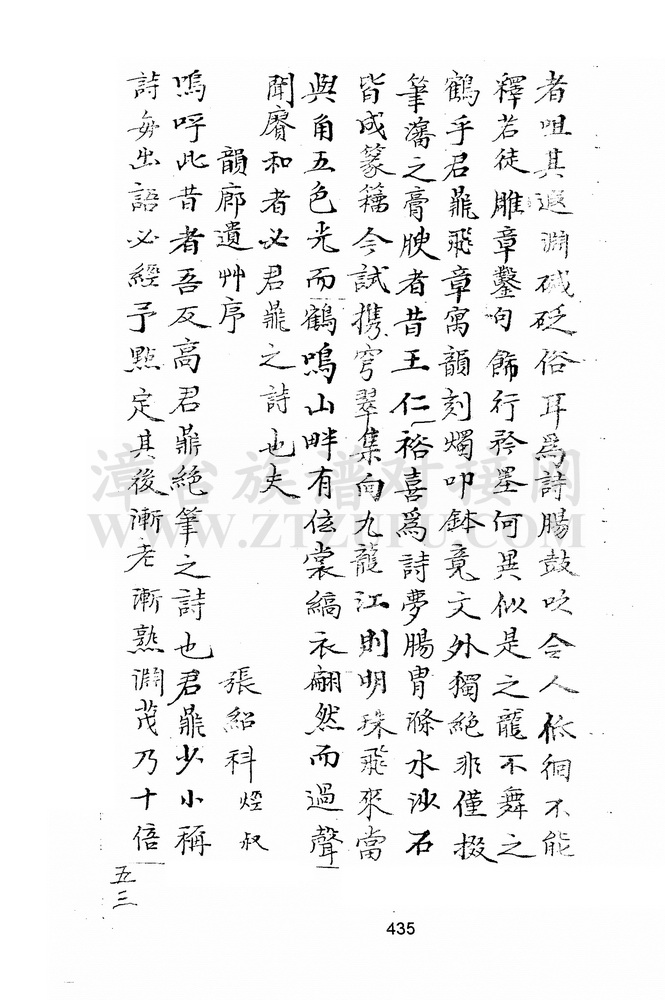 者咀其遐淵碱砭俗耳為詩腸鼓吹令人低徊不能
釋若徒雕章鑿句飾行矜墨何異似是之龍不舞之
鶴乎君鼐飛章寓韻刻燭叩鉢竟文外獨絕非僅掇
筆瀋之膏腴者昔王仁裕喜為詩夢腸胃滌水沙石
皆成篆籀今試携穹翠集向九龍江則明珠飛來當
與角五色光而鶴鳴山畔有伭裳縞衣翩然而過聲
聞賡和者必君鼐之詩也夫
韻廊遺艸序
張紹科 煃叔
嗚呼此昔者吾友高君鼐絕筆之詩也君鼐少小稱
詩每出語必經予點定其後漸老漸熟淵茂乃十倍
五三
435
漳台族谱对接网
WWW.ZTZUPU.COM